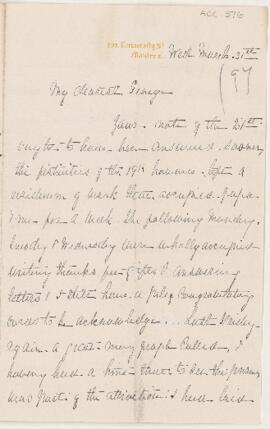 ACC 576
Wed. March. 31st
(97
My dearest George
Yours note of the 21st
ought to have been answered. However
the festivities of the 19th however. left a
residuum of work that occupied Papa
& me for a week. The following Monday
Tuesday & Wednesday were wholly occupied
writing thanks for gifts & answering
letters & I still have a pile of congratulatory
cards to be acknowledged.
again a great many people called, &
having had a hint that to see the
was part of the attraction I had